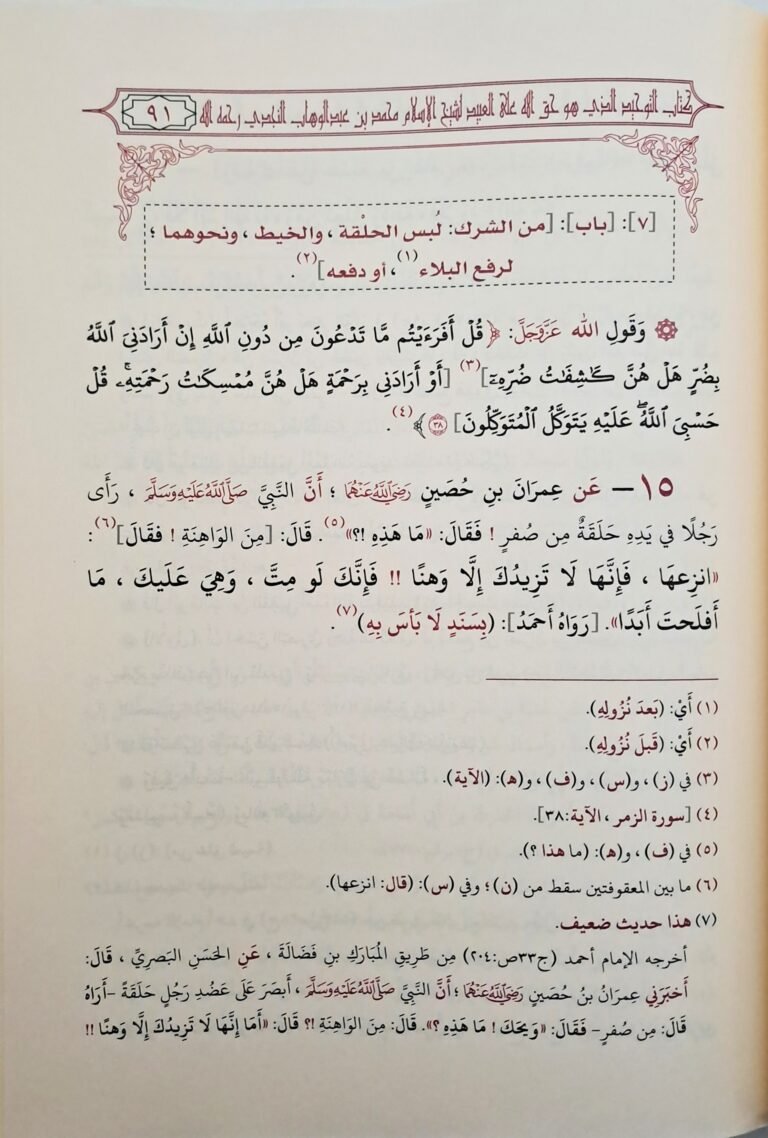 كتاب التوحيد الذي هو حق الله على العبيد لشيخ الإسلام محمد بن عبدالوهاب النجدي رحمه الله ٩١
[٧]: [باب]: [من الشرك: لُبس الحلْقة ، والخيط ، ونحوهما ؛
لرفع البلاء(١)، أو دفعه](٢).
وَقَولِ الله عَزَّوَجَلَّ: ﴿قُلْ أَفَرَءَيْتُم مَّا تَدْعُونَ مِن دُونِ ٱللَّهِ إِنْ أَرَادَنِىَ ٱللَّهُ
بِضُرٍّ هَلْ هُنَّ كَـٰشِفَـٰتُ ضُرِّهِۦٓ](٣) [أَوْ أَرَادَنِى بِرَحْمَةٍ هَلْ هُنَّ مُمْسِكَـٰتُ رَحْمَتِهِۦ ۚ قُلْ
حَسْبِىَ ٱللَّهُ ۖ عَلَيْهِ يَتَوَكَّلُ ٱلْمُتَوَكِّلُونَ] ٣٨﴾(٤).
١٥ – عَن عِمرَانَ بنِ حُصَينٍ رَضِيَ اللَّهُ عَنْهُمَا ؛ أَنَّ النَّبِيَّ صَلَّى اللَّهُ عَلَيْهِ وَسَلَّمَ ، رَأَى
رَجُلًا في يَدِهِ حَلقَةٌ مِن صُفرٍ ! فَقَالَ: «مَا هَذِهِ !؟»(٥). قَالَ: [مِنَ الوَاهِنَةِ ! فقَالَ](٦):
«انزِعهَا ، فَإِنَّهَا لَا تَزِيدُكَ إِلَّا وَهنًا !! فَإِنَّكَ لَو مِتَّ ، وَهِيَ عَلَيكَ ، مَا
أَفلَحتَ أَبَدًا». [رَوَاهُ أَحمَدُ]: (بِسَنَدٍ لَا بَأسَ بِهِ)(٧).
(١) أَيْ: (بَعدَ نُزُولِهِ).
(٢) أَيْ: (قَبلَ نُزُولِهِ).
(٣) في (ز) ، و(س) ، و(ف) ، و(ه‍): (الآية).
(٤) [سورة الزمر ، الآية:٣٨].
(٥) في (ف) ، و(ه‍): (ما هذا ؟).
(٦) ما بين المعقوفتين سقط من (ن) ؛ وفي (س): (قال: انزعها).
(٧) هذا حديث ضعيف.
أخرجه الإمام أحمد (ج٣٣ص:٢٠٤) مِن طَرِيقِ المُبَارَكِ بنِ فَضَالَةَ ، عَنِ الحَسَنِ البَصرِيِّ ، قَالَ:
أَخبَرَنِي عِمرَانُ بنُ حُصَينٍ رَضِيَ اللَّهُ عَنْهُمَا ؛ أَنَّ النَّبِيَّ صَلَّى اللَّهُ عَلَيْهِ وَسَلَّمَ ، أَبصَرَ عَلَى عَضُدِ رَجُلٍ حَلقَةً –أَرَاهُ
قَالَ: مِن صُفرٍ– فَقَالَ: «وَيحَكَ ! مَا هَذِهِ ؟». قَالَ: مِنَ الوَاهِنَةِ !؟ قَالَ: «أَمَا إِنَّهَا لَا تَزِيدُكَ إِلَّا وَهنًا !!